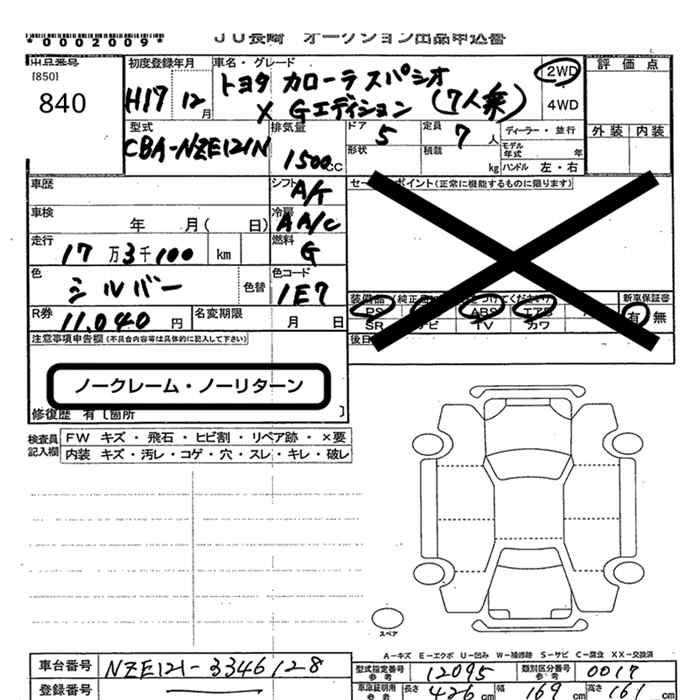 *0002009*
JU長崎 オークション出品申込書
出品番号 初度登録年月 車名・グレード 評価点
[850] トヨタ カローラスパシオ 2WD
840 H17 12月 X Gエディション(7人乗) 4WD
型式 排気量 ドア 5 定員 7人 ディーラー・並行 外装 内装
CBA-NZE121N 1500CC 形状 積載 kg モデル年式 年
ハンドル 左・右
車歴 シフト A/T セールスポイント(正常に機能するものに限ります)
車検 年 月( 日) 冷房 A A/C
走行 17万3千100 km 燃料 G
色 シルバー 色替 色コード 1E7
装備品(純正 つけてください) 新車保証書
PS ABS エアB 有 無
SR ナビ TV カワ
R券 11,040円 名変期限 月 日
注意事項申告欄(不具合内容等は具体的に記入して下さい) 後日
ノークレーム・ノーリターン
修復歴 有〔箇所 〕
検査員記入欄 FW キズ・飛石・ヒビ割・リペア跡・×要
内装 キズ・汚レ・コゲ・穴・スレ・キレ・破レ
スペア
A-キズ E-エクボ U-凹み W-補修跡 S-サビ C-腐食 XX-交換済
車台番号 NZE121-3346128 型式指定番号 参考 12095 類別区分番号 参考 0017
登録番号 車庫証明用 参考 長さ 426cm 幅 169cm 高さ 161cm